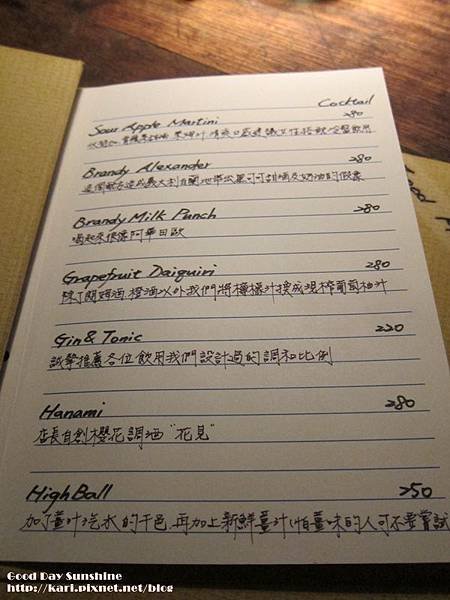 Cocktail
Sour Apple Martini 280
Brandy Alexander 280
Brandy Milk Punch 280
喝起來很像阿華日歐
Grapefruit Daiquiri 280
除了蘭姆酒 橙酒以外我們將檸檬汁換成現榨葡萄柚汁
Gin & Tonic 220
誠摯推薦各位飲用我們設計過的調和比例
Hanami 280
店長自創櫻花調酒"花見"
High Ball 250
加了薑汁汽水的干邑 再加上新鮮薑汁(怕薑味的人可不要嘗試
Good Day Sunshine
http://karl.pixnet.net/blog